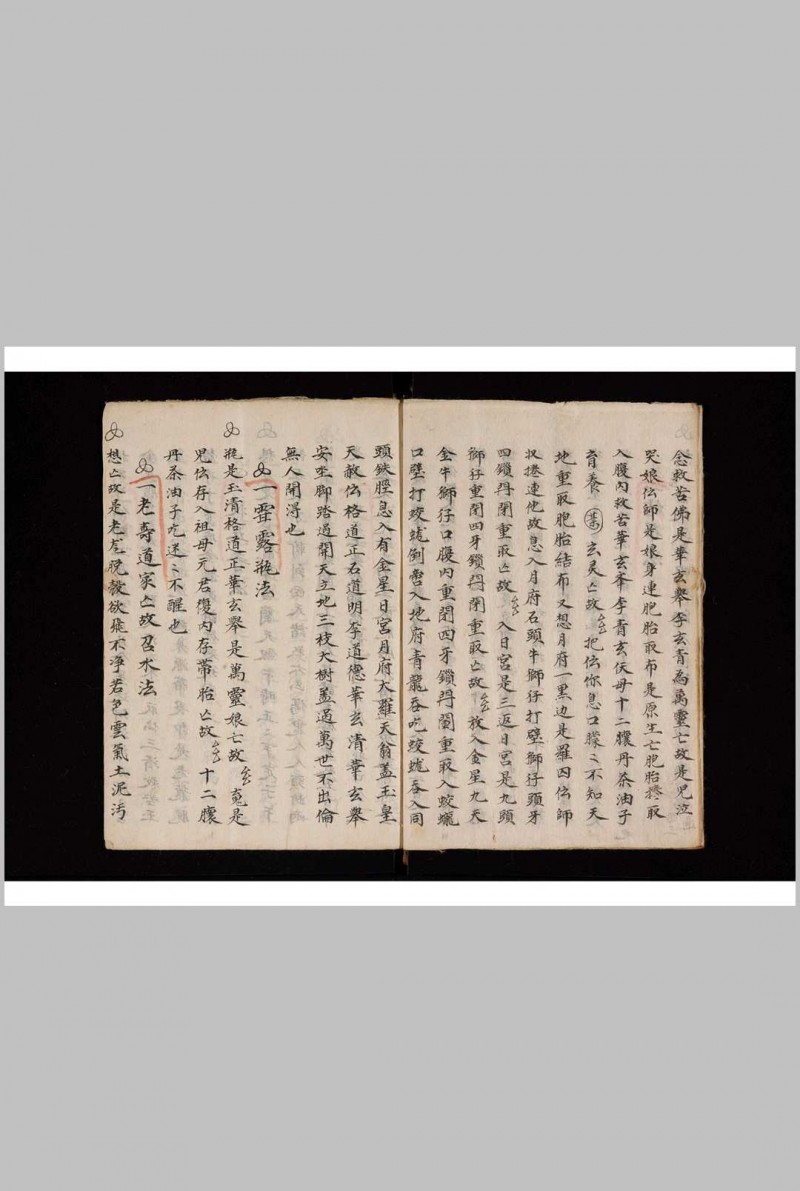 念救苦佛是華玄舉李玄青為萬靈亡故是兒泣
哭娘伝師是娘身連胞胎取布是原生亡胞胎捲取
入腹內救苦華玄李青玄伏母十二臁丹茶油子
育養 玄灵亡故 把伝你息口朦〻不知天
地重取胞胎結布又想月府一黑边是羅因伝師
収捲連他故息入月府石頭牛獅仔打壁獅仔頭牙
四鎖閉重取亡故 入日宮是三返日宮是九頭
獅仔重閉四牙鎖閉重取亡故 放入金星九天
金牛獅仔口腹內重閉四牙鎖重取入蛟
口壁打倒雪入地府青龍吞吃吞入同
頭鉄脛息入有金星日宮月府大羅天翁蓋玉皇
天赦伝格道正石道明李道德華玄清華玄舉
安坐脚踏過開天立地三枝大樹蓋過萬世不出倫
無人開淂也
一霊露瓶法
瓶是玉清格道正華玄舉是萬靈娘亡故 是
兒伝存入祖母元君復內存帯胎亡故 十二臁
丹茶油子吃迷〻不醒也
一老壽道家亡故召水法
想亡故是老君脫殼欲飛不淨若色雲氣土泥污